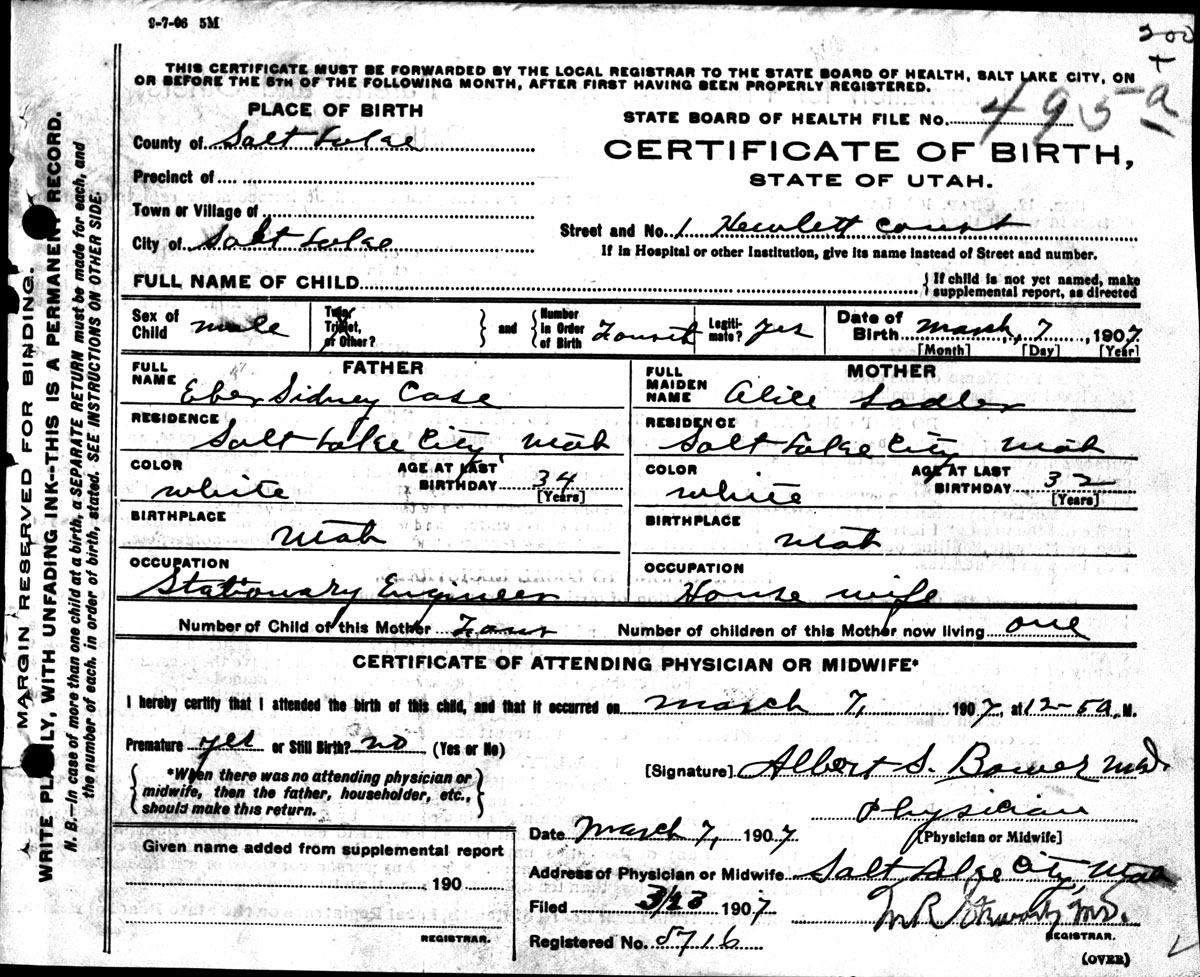 9-7-06 5M
200
+
THIS CERTIFICATE MUST BE FORWARDED BY THE LOCAL REGISTRAR TO THE STATE BOARD OF HEALTH, SALT LAKE CITY, ON
OR BEFORE THE 5TH OF THE FOLLOWING MONTH, AFTER FIRST HAVING BEEN PROPERLY REGISTERED.
PLACE OF BIRTH
STATE BOARD OF HEALTH FILE No. 495 a
County of Salt Lake
CERTIFICATE OF BIRTH,
STATE OF UTAH.
Precinct of
Town or Village of
Street and No. 1 Hewlett Court
City of Salt Lake
If in Hospital or other Institution, give its name instead of Street and number.
FULL NAME OF CHILD
If child is not yet named, make
supplemental report, as directed
Sex of Child male
Twin, Triplet, or Other?
and
Number in Order of Birth Fourth
Legiti-mate? yes
Date of Birth March, 7, 1907
[Month] [Day] [Year]
FATHER
FULL NAME Eber Sidney Case
RESIDENCE
Salt Lake City Utah
COLOR white
AGE AT LAST BIRTHDAY 34
[Years]
BIRTHPLACE
Utah
OCCUPATION
Stationary Engineer
MOTHER
FULL MAIDEN NAME Alice Sadler
RESIDENCE
Salt Lake City Utah
COLOR white
AGE AT LAST BIRTHDAY 32
[Years]
BIRTHPLACE
Utah
OCCUPATION
House wife
Number of Child of this Mother Four
Number of children of this Mother now living one
CERTIFICATE OF ATTENDING PHYSICIAN OR MIDWIFE*
I hereby certify that I attended the birth of this child, and that it occurred on March 7, 1907, at 12-5 a. M.
Premature yes or Still Birth? no (Yes or No)
*When there was no attending physician or
midwife, then the father, householder, etc.,
should make this return.
[Signature] Albert S. Bower M.D.
Physician
[Physician or Midwife]
Date March 7, 1907
Given name added from supplemental report
190
REGISTRAR.
Address of Physician or Midwife Salt Lake City, Utah
Filed 3/23 1907
M R Stewart, M.D.
REGISTRAR.
Registered No. 5716
(OVER)
MARGIN RESERVED FOR BINDING.
WRITE PLAINLY, WITH UNFADING INK--THIS IS A PERMANENT RECORD.
N. B.—In case of more than one child at a birth, a SEPARATE RETURN must be made for each, and
the number of each, in order of birth, stated. SEE INSTRUCTIONS ON OTHER SIDE.